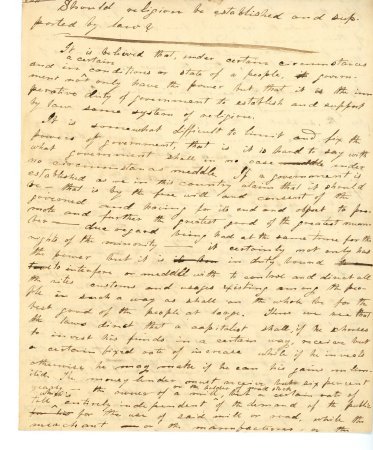 Should religion be established and sup-
ported by law?
It is believed that, under certain circumstances
a certain
in conditions or state of a people, govern-
ment not only have the power but, that it is the im
perative duty of government to establish and support
by law some system of religion.
It is somewhat difficult to limit and fix the
powers of government, that is it is hard to say with
what government shall in no case under
no circumstances meddle. If a government is
established as we in this country claim that it should
be — that is by the free will and consent of the
governed and having for its end and object to pro-
mote and further the greatest good of the greatest num
ber — due regard being had at the same time for the
rights of the minority — it certainly not only has
the power but it is in duty bound
to interfere or meddle with to control and direct all
the rites customs and usages existing among the peo-
ple in such a way as shall on the whole be for the
best good of the people at large. Thus we see that
the laws direct that a capitalist shall, if he chooses
to invest his funds in a certain way, receive but
a certain fixed rate of increase while if he invests
otherwise he may make if he can his gains unlim-
ited. The money lender must receive but six percent
yearly — the owner of a mill but a certain rate of
toll entirely independent of the demand of the public
for the use of said mill or road, while the
merchant or the manufacturer, or the